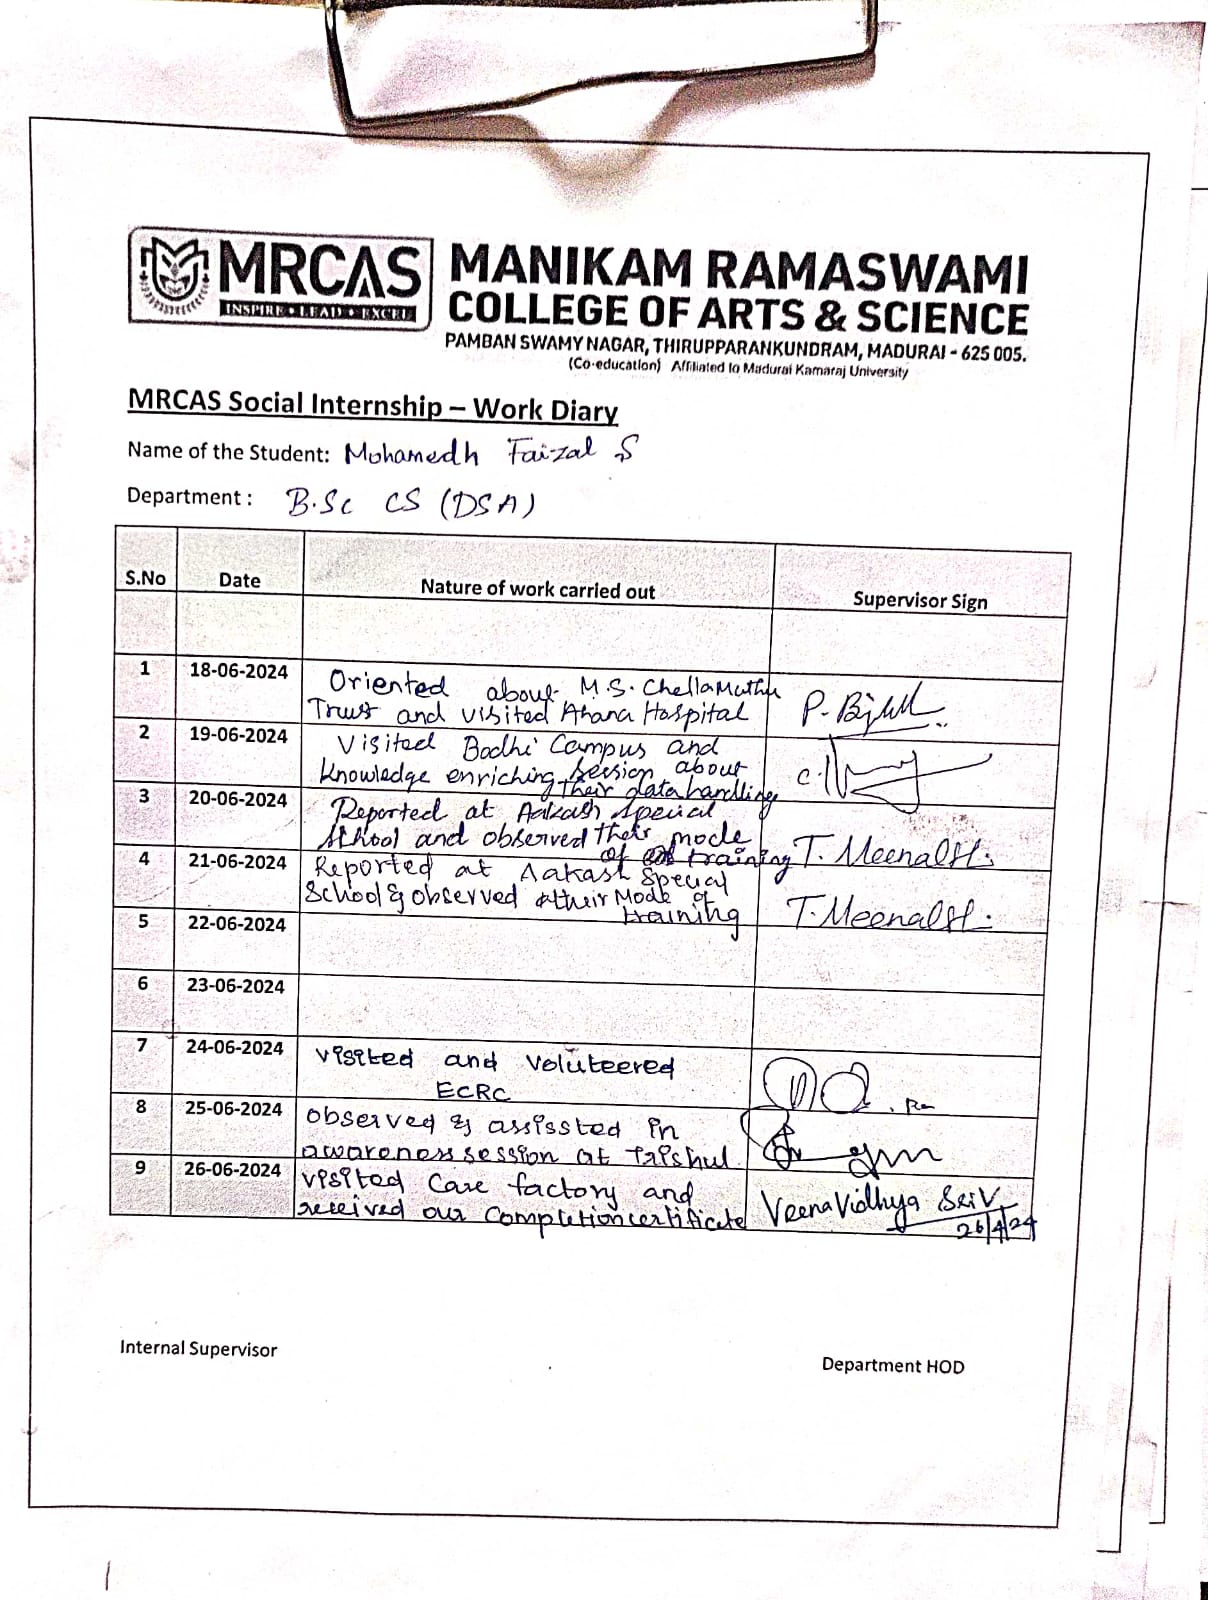 MRCAS
INSPIRE • LEAD • EXCEL
MANIKAM RAMASWAMI
COLLEGE OF ARTS & SCIENCE
PAMBAN SWAMY NAGAR, THIRUPPARANKUNDRAM, MADURAI - 625 005.
(Co-education) Affiliated to Madurai Kamaraj University
MRCAS Social Internship – Work Diary
Name of the Student: Mohamedh Faizal S
Department : B.Sc CS (DSA)
S.No Date Nature of work carried out Supervisor Sign
1 18-06-2024 Oriented about M.S. ChellaMuthu
Trust and visited Ahana Hospital
2 19-06-2024 Visited Bodhi Campus and
Knowledge enriching session about
their data handling
3 20-06-2024 Reported at Aakash special
school and observed their mode
of training T. Meenakshi.
4 21-06-2024 Reported at Aakash Special
School & observed their Mode of
training T. Meenakshi.
5 22-06-2024
6 23-06-2024
7 24-06-2024 visited and voluteered
ECRC
8 25-06-2024 observed & assissted in
awareness session at Trishul
9 26-06-2024 visited Care factory and
received our completion certificate Veena Vidhya Sri V
26/4/24
Internal Supervisor
Department HOD